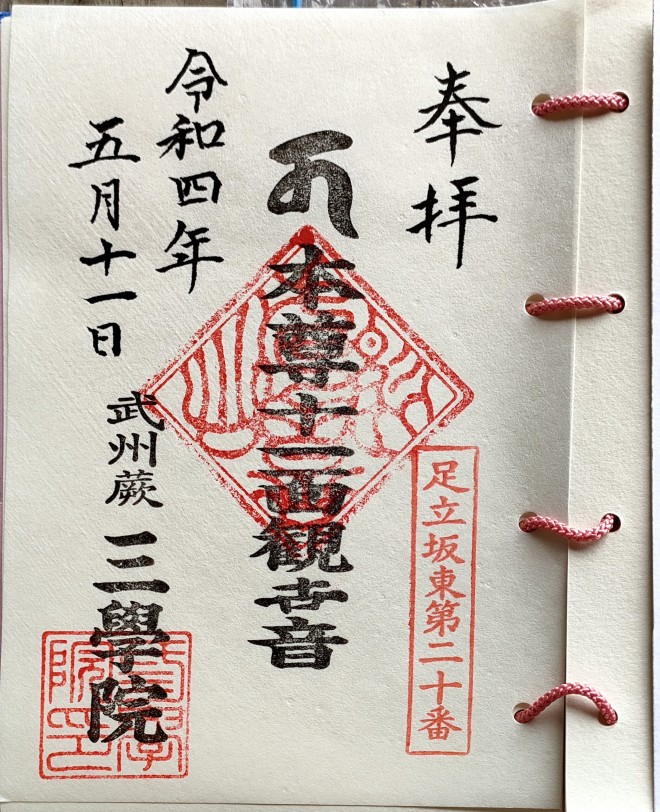 奉拝
足立坂東第二十番
本尊十一面観世音
令和四年
五月十一日
武州蕨 三學院